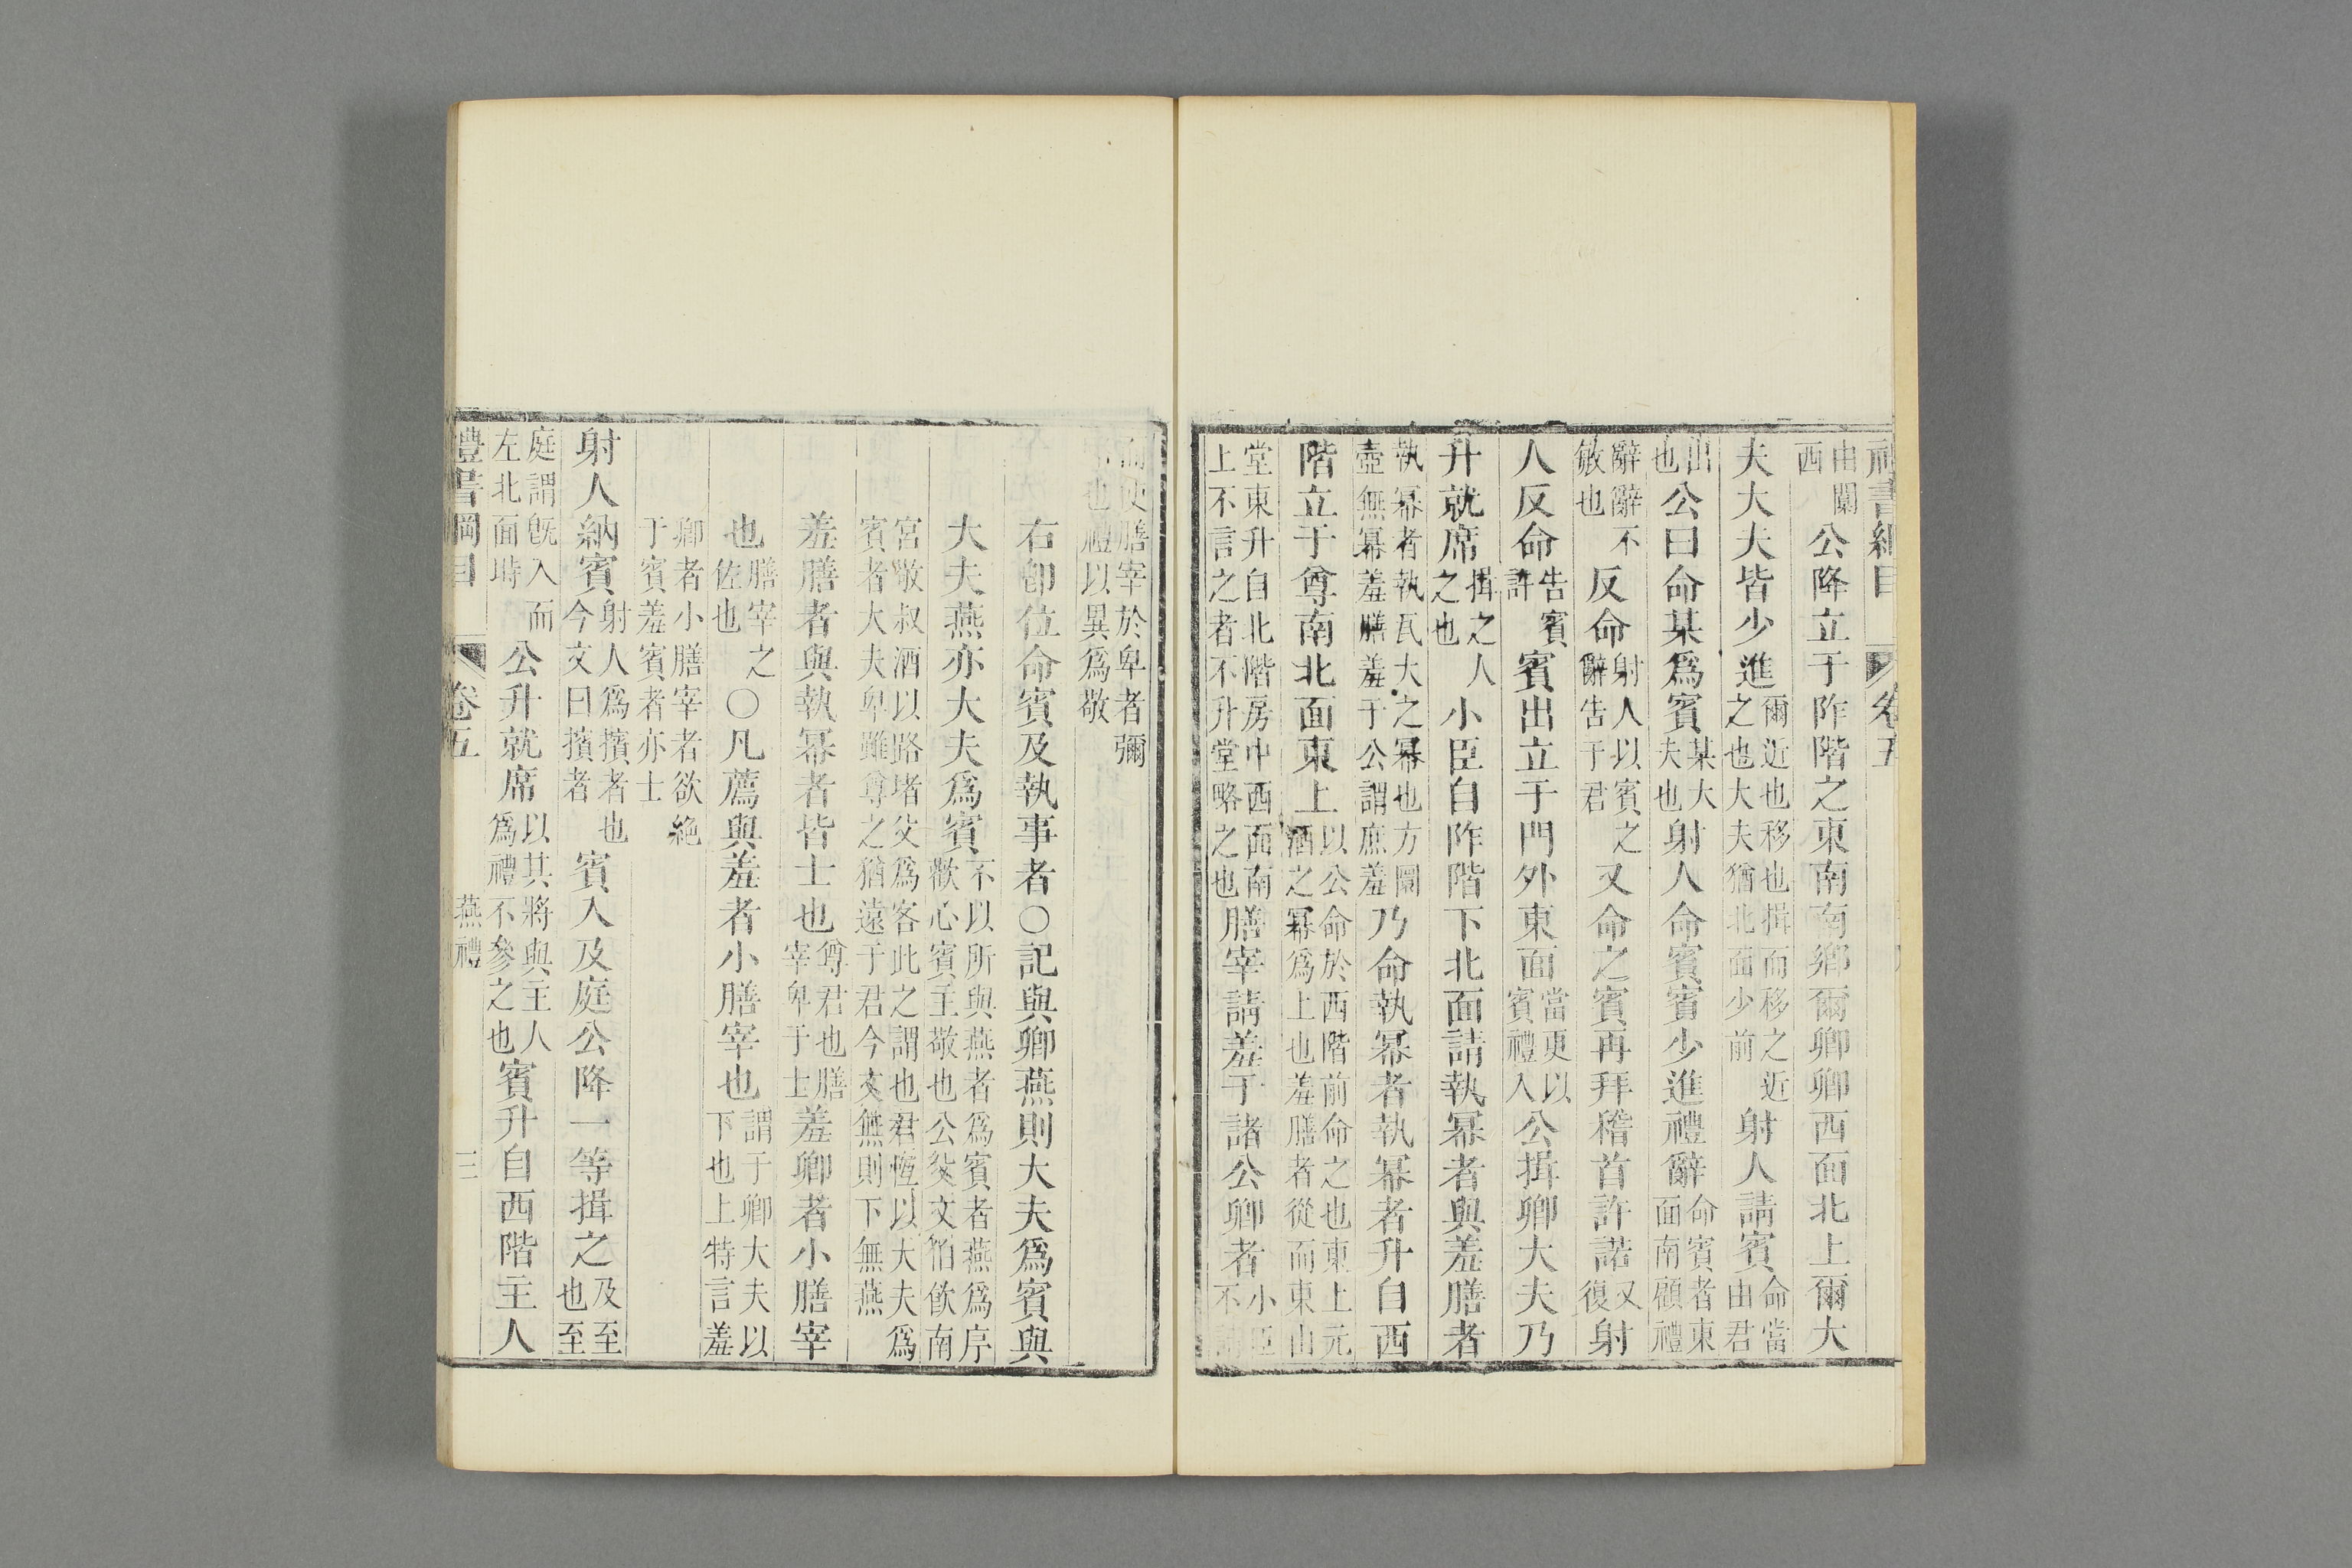 禮書綱目 卷五
由闑西公降立于阼階之東南南鄉爾卿卿西面北上爾大
夫大夫皆少進爾近也移也揖而移之近之也大夫猶北面少前射人請賓命當由君
出也公曰命某爲賓某大夫也射人命賓賓少進禮辭命賓者東面南顧禮
辭辭不敏也反命射人以賓之辭告于君又命之賓再拜稽首許諾又復射
人反命告賓許賓出立于門外東面當更以賓禮入公揖卿大夫乃
升就席揖之人之也小臣自阼階下北面請執冪者與羞膳者
執冪者執瓦大之冪也方圜壺無冪羞膳羞于公謂庶羞乃命執冪者執冪者升自西
階立于尊南北面東上以公命於西階前命之也東上元酒之冪爲上也羞膳者從而東由
堂東升自北階房中西面南上不言之者不升堂略之也膳宰請羞于諸公卿者小臣不請
而使膳宰於卑者彌也禮以異爲敬
右卽位命賓及執事者○記與卿燕則大夫爲賓與
大夫燕亦大夫爲賓不以所與燕者爲賓者燕爲序歡心賓主敬也公父文伯飮南
宮敬叔酒以路堵父爲客此之謂也君恆以大夫爲賓者大夫卑雖尊之猶遠于君今文無則下無燕
羞膳者與執冪者皆士也尊君也膳宰卑于士羞卿者小膳宰
也膳宰之佐也○凡薦與羞者小膳宰也謂于卿大夫以下也上特言羞
卿者小膳宰者欲絶于賓羞賓者亦士
射人納賓射人爲擯者也今文曰擯者賓入及庭公降一等揖之及至也至
庭謂旣入而左北面時公升就席以其將與主人爲禮不參之也賓升自西階主人
禮書綱目 卷五 燕禮 三